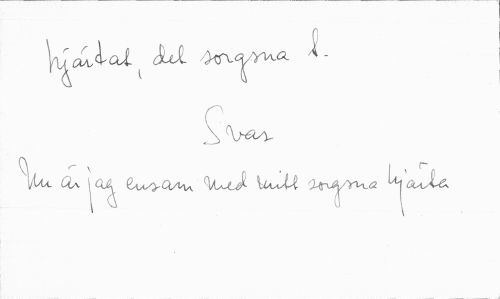 hjärtat, det sorgsna t.
Svar
Nu är jag ensam med mitt sorgsna hjärta